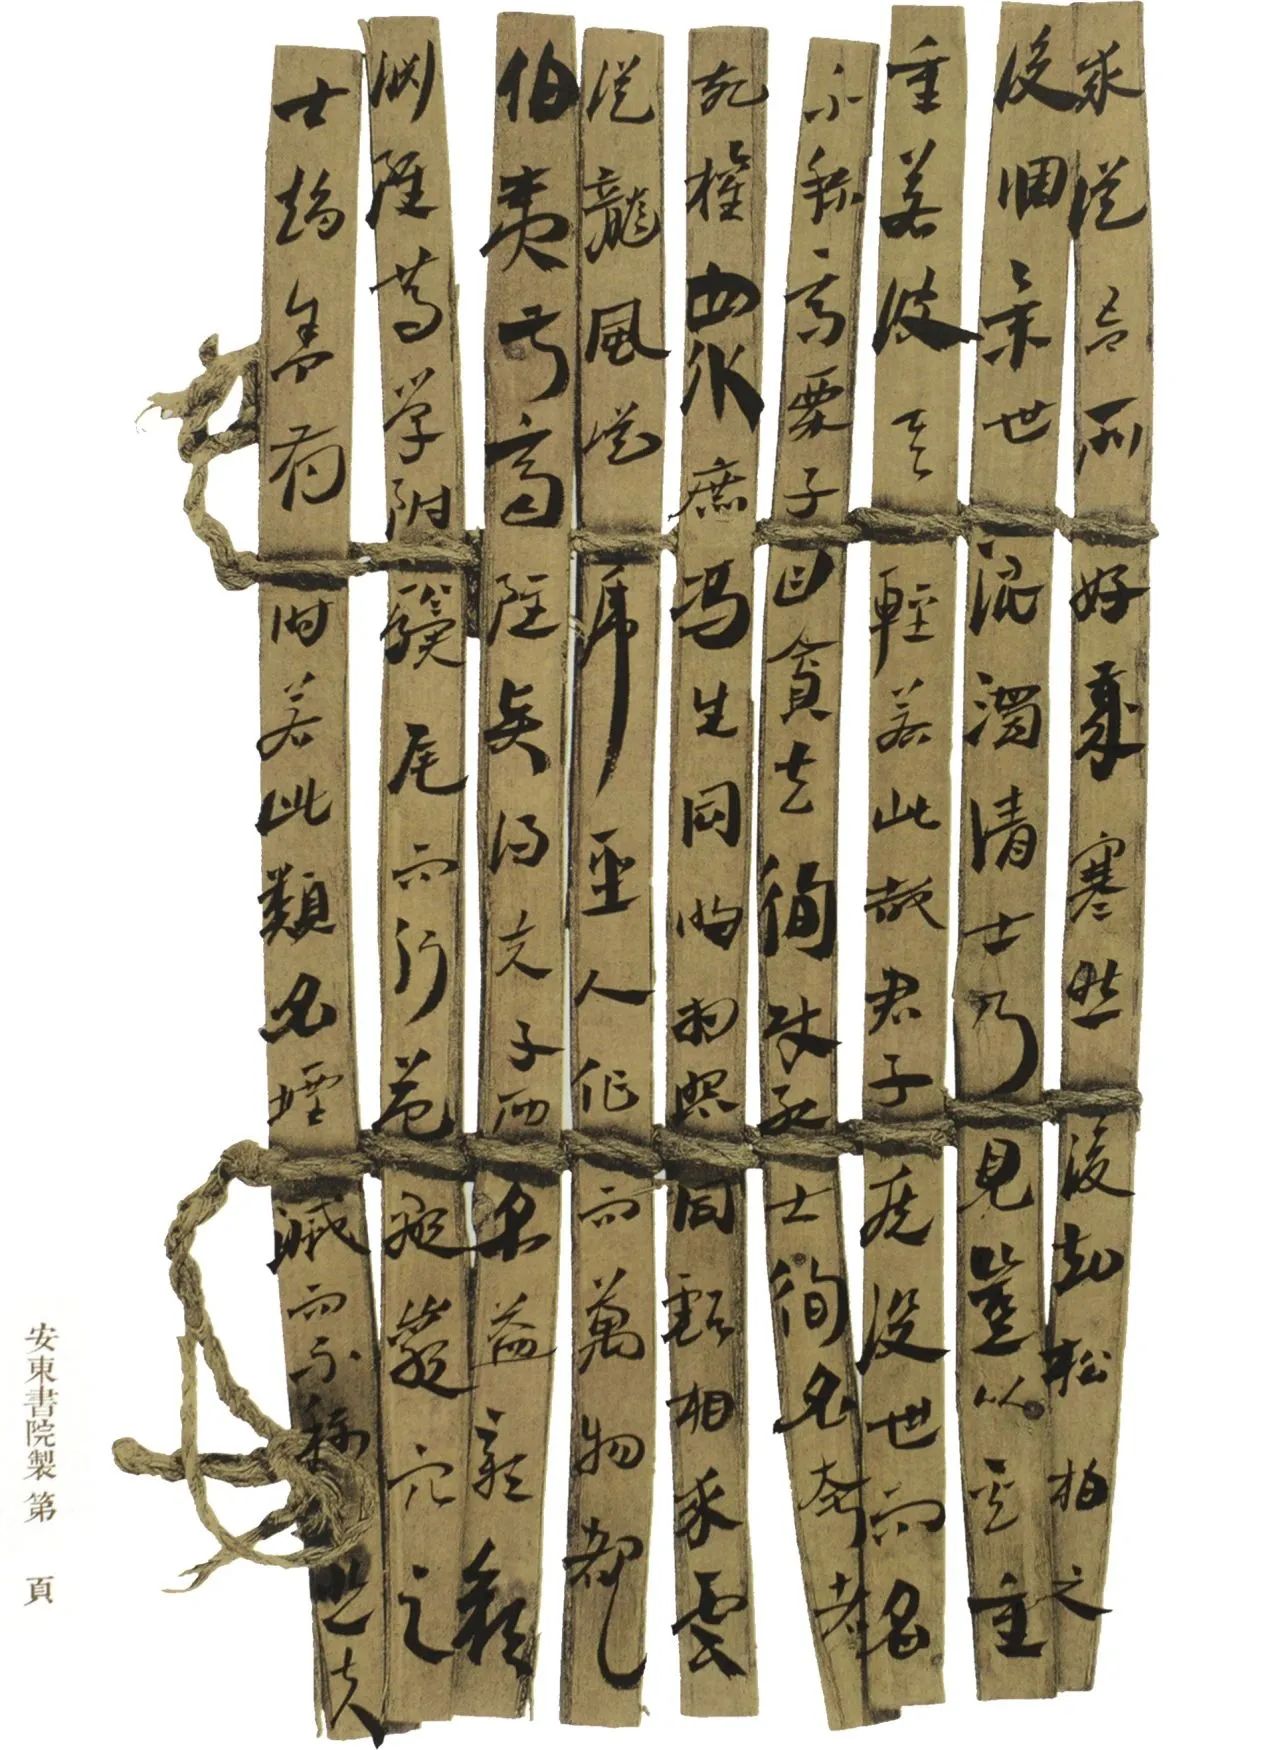 求從吾所好歲寒然後知松柏之
後凋舉世混濁清士乃見豈以其重
重若彼其輕若此哉君子疾沒世而名
不稱焉賈子曰貪夫徇財烈士徇名夸者
死權衆庶馮生同明相照同類相求雲
從龍風從虎聖人作而萬物覩
伯夷叔齊雖賢得夫子而名益彰顏
淵雖篤學附驥尾而行益顯巖穴之
士趨舍有時若此類名堙滅而不稱悲夫
安東書院製 第 頁